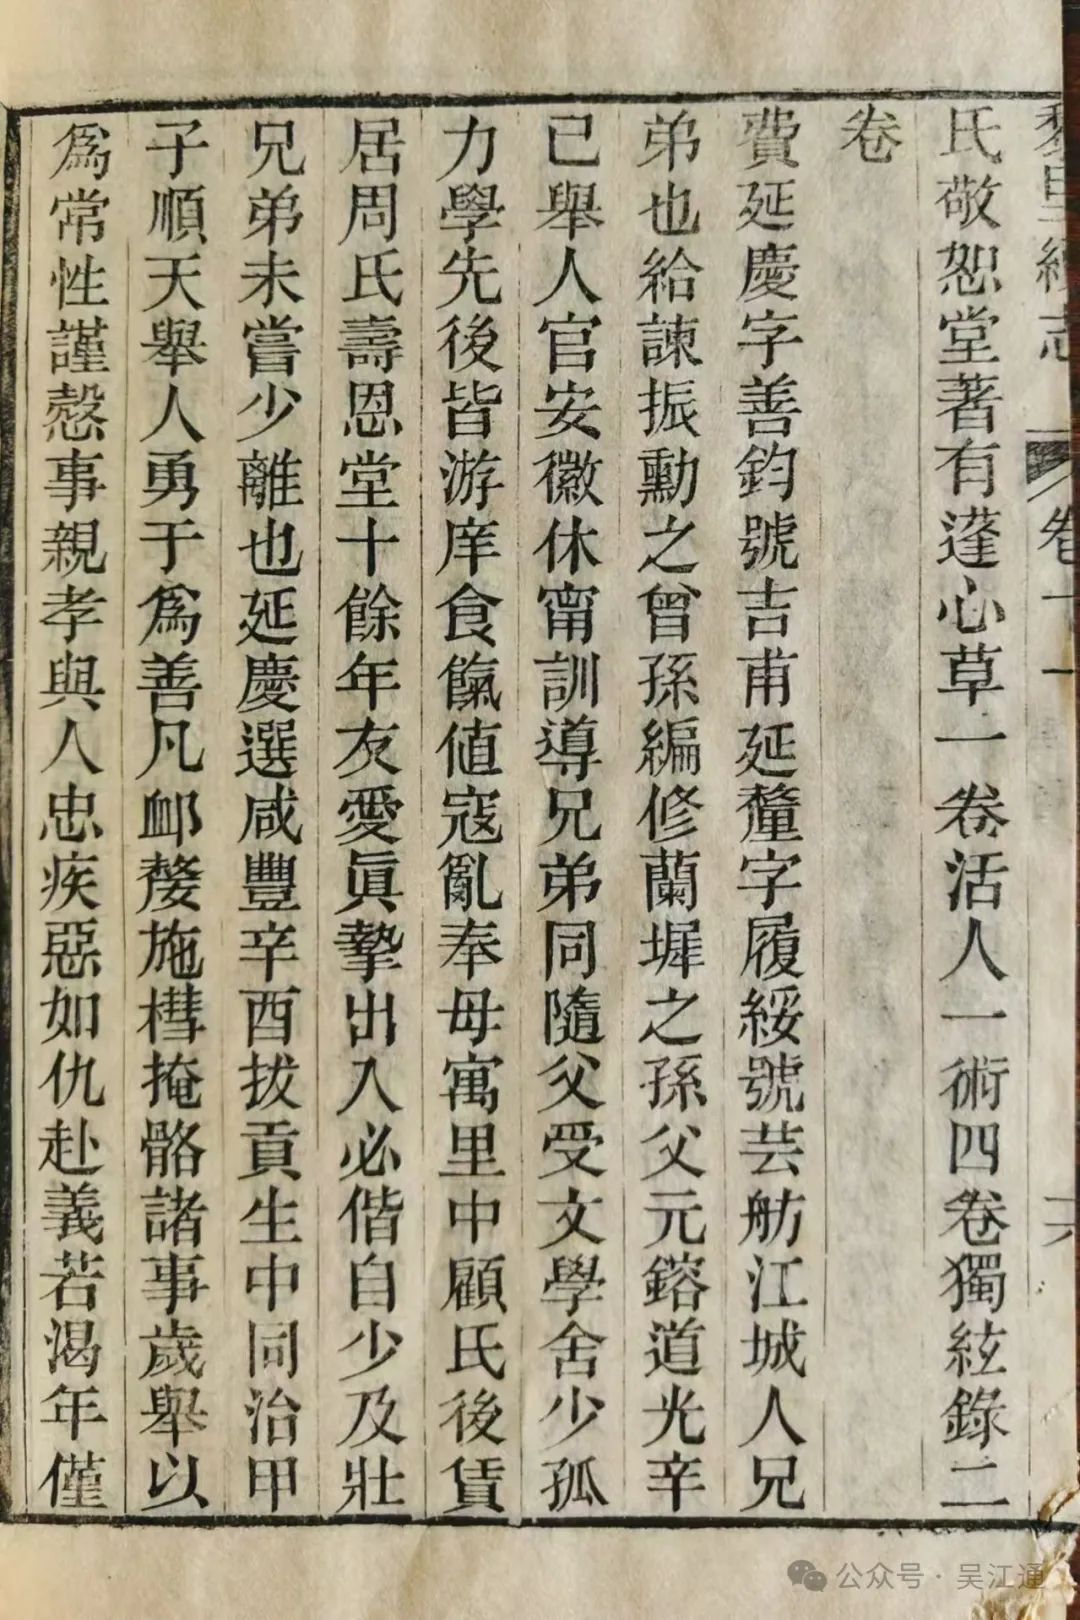 黎里續志
卷十一
十六
氏敬恕堂著有蓬心草一卷活人一術四卷獨絃錄二
卷
費延慶字善鈞號吉甫延釐字履綏號芸舫江城人兄
弟也給諫振勳之曾孫編修蘭墀之孫父元鎔道光辛
已舉人官安徽休甯訓導兄弟同隨父受文學舍少孤
力學先後皆游庠食餼値寇亂奉母寓里中顧氏後賃
居周氏壽恩堂十餘年友愛眞摯出入必偕自少及壯
兄弟未嘗少離也延慶選咸豐辛酉拔貢生中同治甲
子順天舉人勇于爲善凡卹嫠施槥掩骼諸事歲舉以
爲常性謹慤事親孝與人忠疾惡如仇赴義若渴年僅
公众号·吴江通